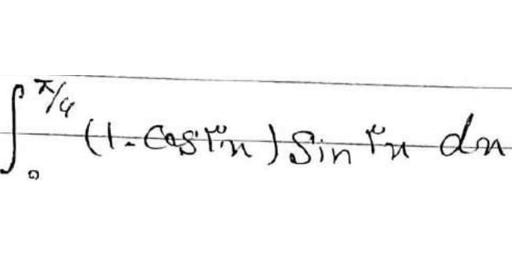 ∫₀^π/۶ (1-cos ۳x) sin ۳x dx